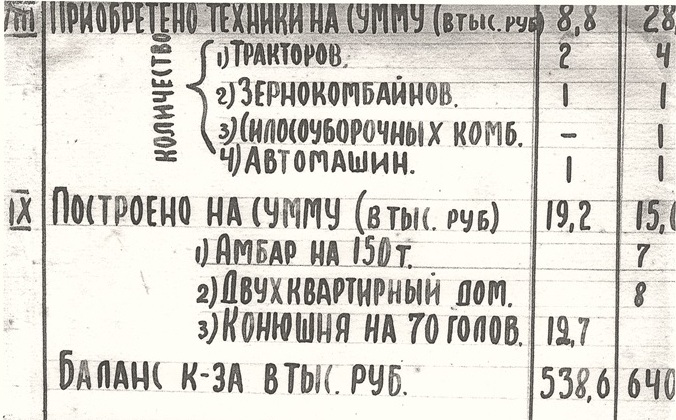 VIII ПРИОБРЕТЕНО ТЕХНИКИ НА СУММУ (В ТЫС. РУБ) 8,8 28,
КОЛИЧЕСТВО
1) ТРАКТОРОВ. 2 4
2) ЗЕРНОКОМБАЙНОВ. 1 1
3) СИЛОСОУБОРОЧНЫХ КОМБ. – 1
4) АВТОМАШИН. 1 1
IX ПОСТРОЕНО НА СУММУ (В ТЫС. РУБ) 19,2 15,0
1) АМБАР НА 150 Т. 7
2) ДВУХКВАРТИРНЫЙ ДОМ. 8
3) КОНЮШНЯ НА 70 ГОЛОВ. 12,7
БАЛАНС К-ЗА В ТЫС. РУБ. 538,6 640